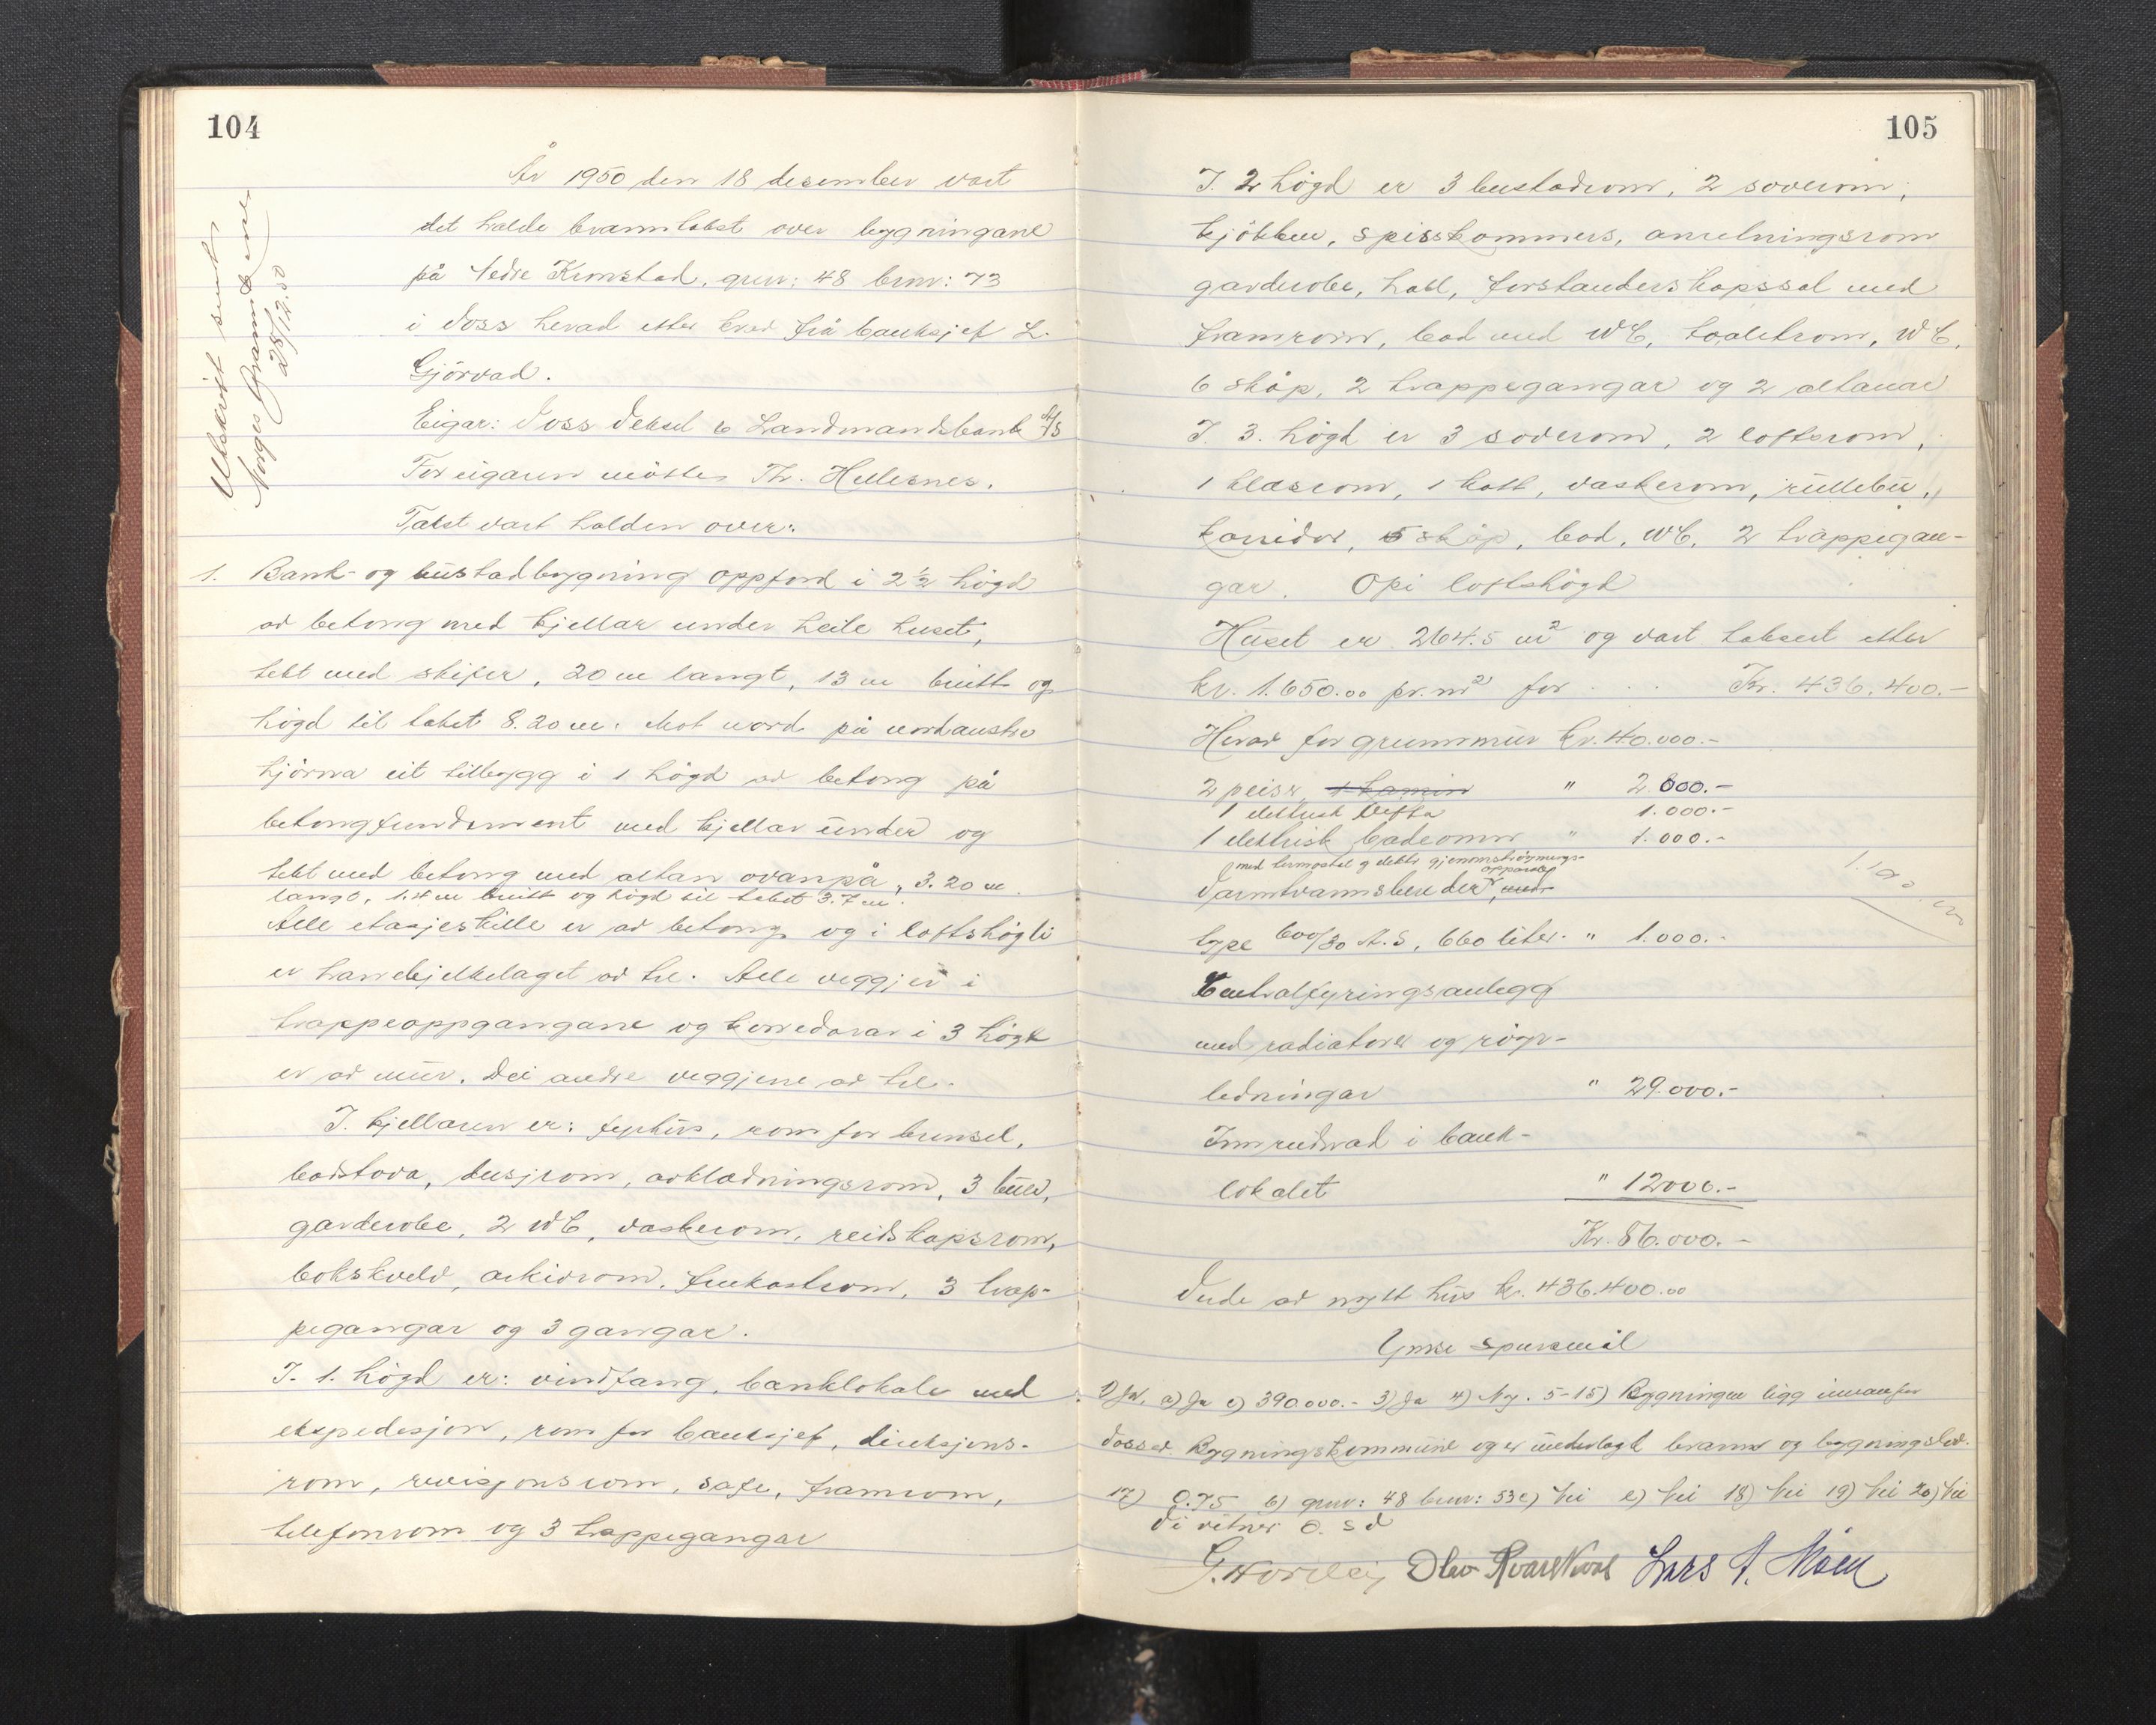 104
År 1950 den 18 desember vart
det halde branntakst over bygningane
på Nedre Kinstad, gnr: 48 bnr: 73
i Voss herad etter krav frå banksjef L.
Gjörvad.
Eigar: Voss Veksel & Landmandsbank A/S
For eigaren møtte, Th. Hellesnes.
Takst vart halden over:
Utskrift sendt
Norges Brannkasse
28/12.50
1. Bank- og bustadbygning oppförd i 2 1/2 högd
av betong med kjellar under heile huset,
tekt med skifer, 20 m langt, 13 m breitt og
högd til taket 8.20 m. Mot nord på nordaustre
hjörna eit tilbygg i 1 högd av betong på
betongfundament med kjellar under og
tekt med betong med altan ovanpå, 3.20 m
langt, 1.4 m breitt og högd til taket 3.7 m.
Alle etasjeskille er av betong og i loftshögdi
er hanebjelkelaget av tre. Alle veggjer i
trappeoppgangane og korredorar i 3 högd
er av mur. Dei andre veggjene av tre.
I. kjellaren er: fyrhus, rom for brensel,
badstova, dusjrom, avkledningsrom, 3 buer,
garderobe, 2 WC, vaskerom, reidskapsrom,
bokskvelv, arkivrom, frukostrom, 3 trap-
pegangar og 3 gangar.
I. 1. högd er: vindfang, banklokale med
ekspedisjon, rom for banksjef, direksjons-
rom, revisjonsrom, safe, framrom,
telefonrom og 3 trappegangar
105
I. 2 högd er 3 bustadrom, 2 soverom,
kjökken, spisskammers, anretningsrom
garderobe, hall, forstanderskapssal med
framrom, bad med WC, toaletrom, WC,
6 skåp, 2 trappegangar og 2 altanar
I. 3. högd er 3 soverom, 2 loftsrom,
1 klesrom, 1 kott, vaskerom, rullebu,
korridor, 5 skåp, bad, WC, 2 trappegan-
gar. Opi loftshögd
Huset er 264.5 m² og vart taksert etter
kr. 1.650.00 pr. m² for . . . Kr. 436.400.-
Herav for grunnmur kr. 40.000.-
2 peisr, 1 kamin " 2.000.-
1 elektrisk vifta 1.000.-
1 elektrisk badeomn " 1.000.-
med termostat og elektr gjennomströymings-
apparat
Varmtvannsbereder, med
type 600/30 A.S, 660 liter. " 1.000.-
Centralfyringsanlegg
med radiatorer og rör-
ledningar " 29.000.-
Innreidnad i bank-
lokalet " 12000.-
Kr. 86.000.-
Verde av nytt hus kr. 436.400.00
Ymse spursmål
1) Ja, a) Ja c) 390.000.- 3) Ja 4) Ny. 5-15) Bygningen ligg innanfor
Vossev. Bygningskommune og er underlagt brann og bygningslov.
17) 0.75 b) gnr: 48 bnr: 53 c) Nei e) Nei 18) Nei 19) Nei 20) Nei
Vi vitner o. s v
G. Nordeig Olav Kvarekval Lars A. Møen